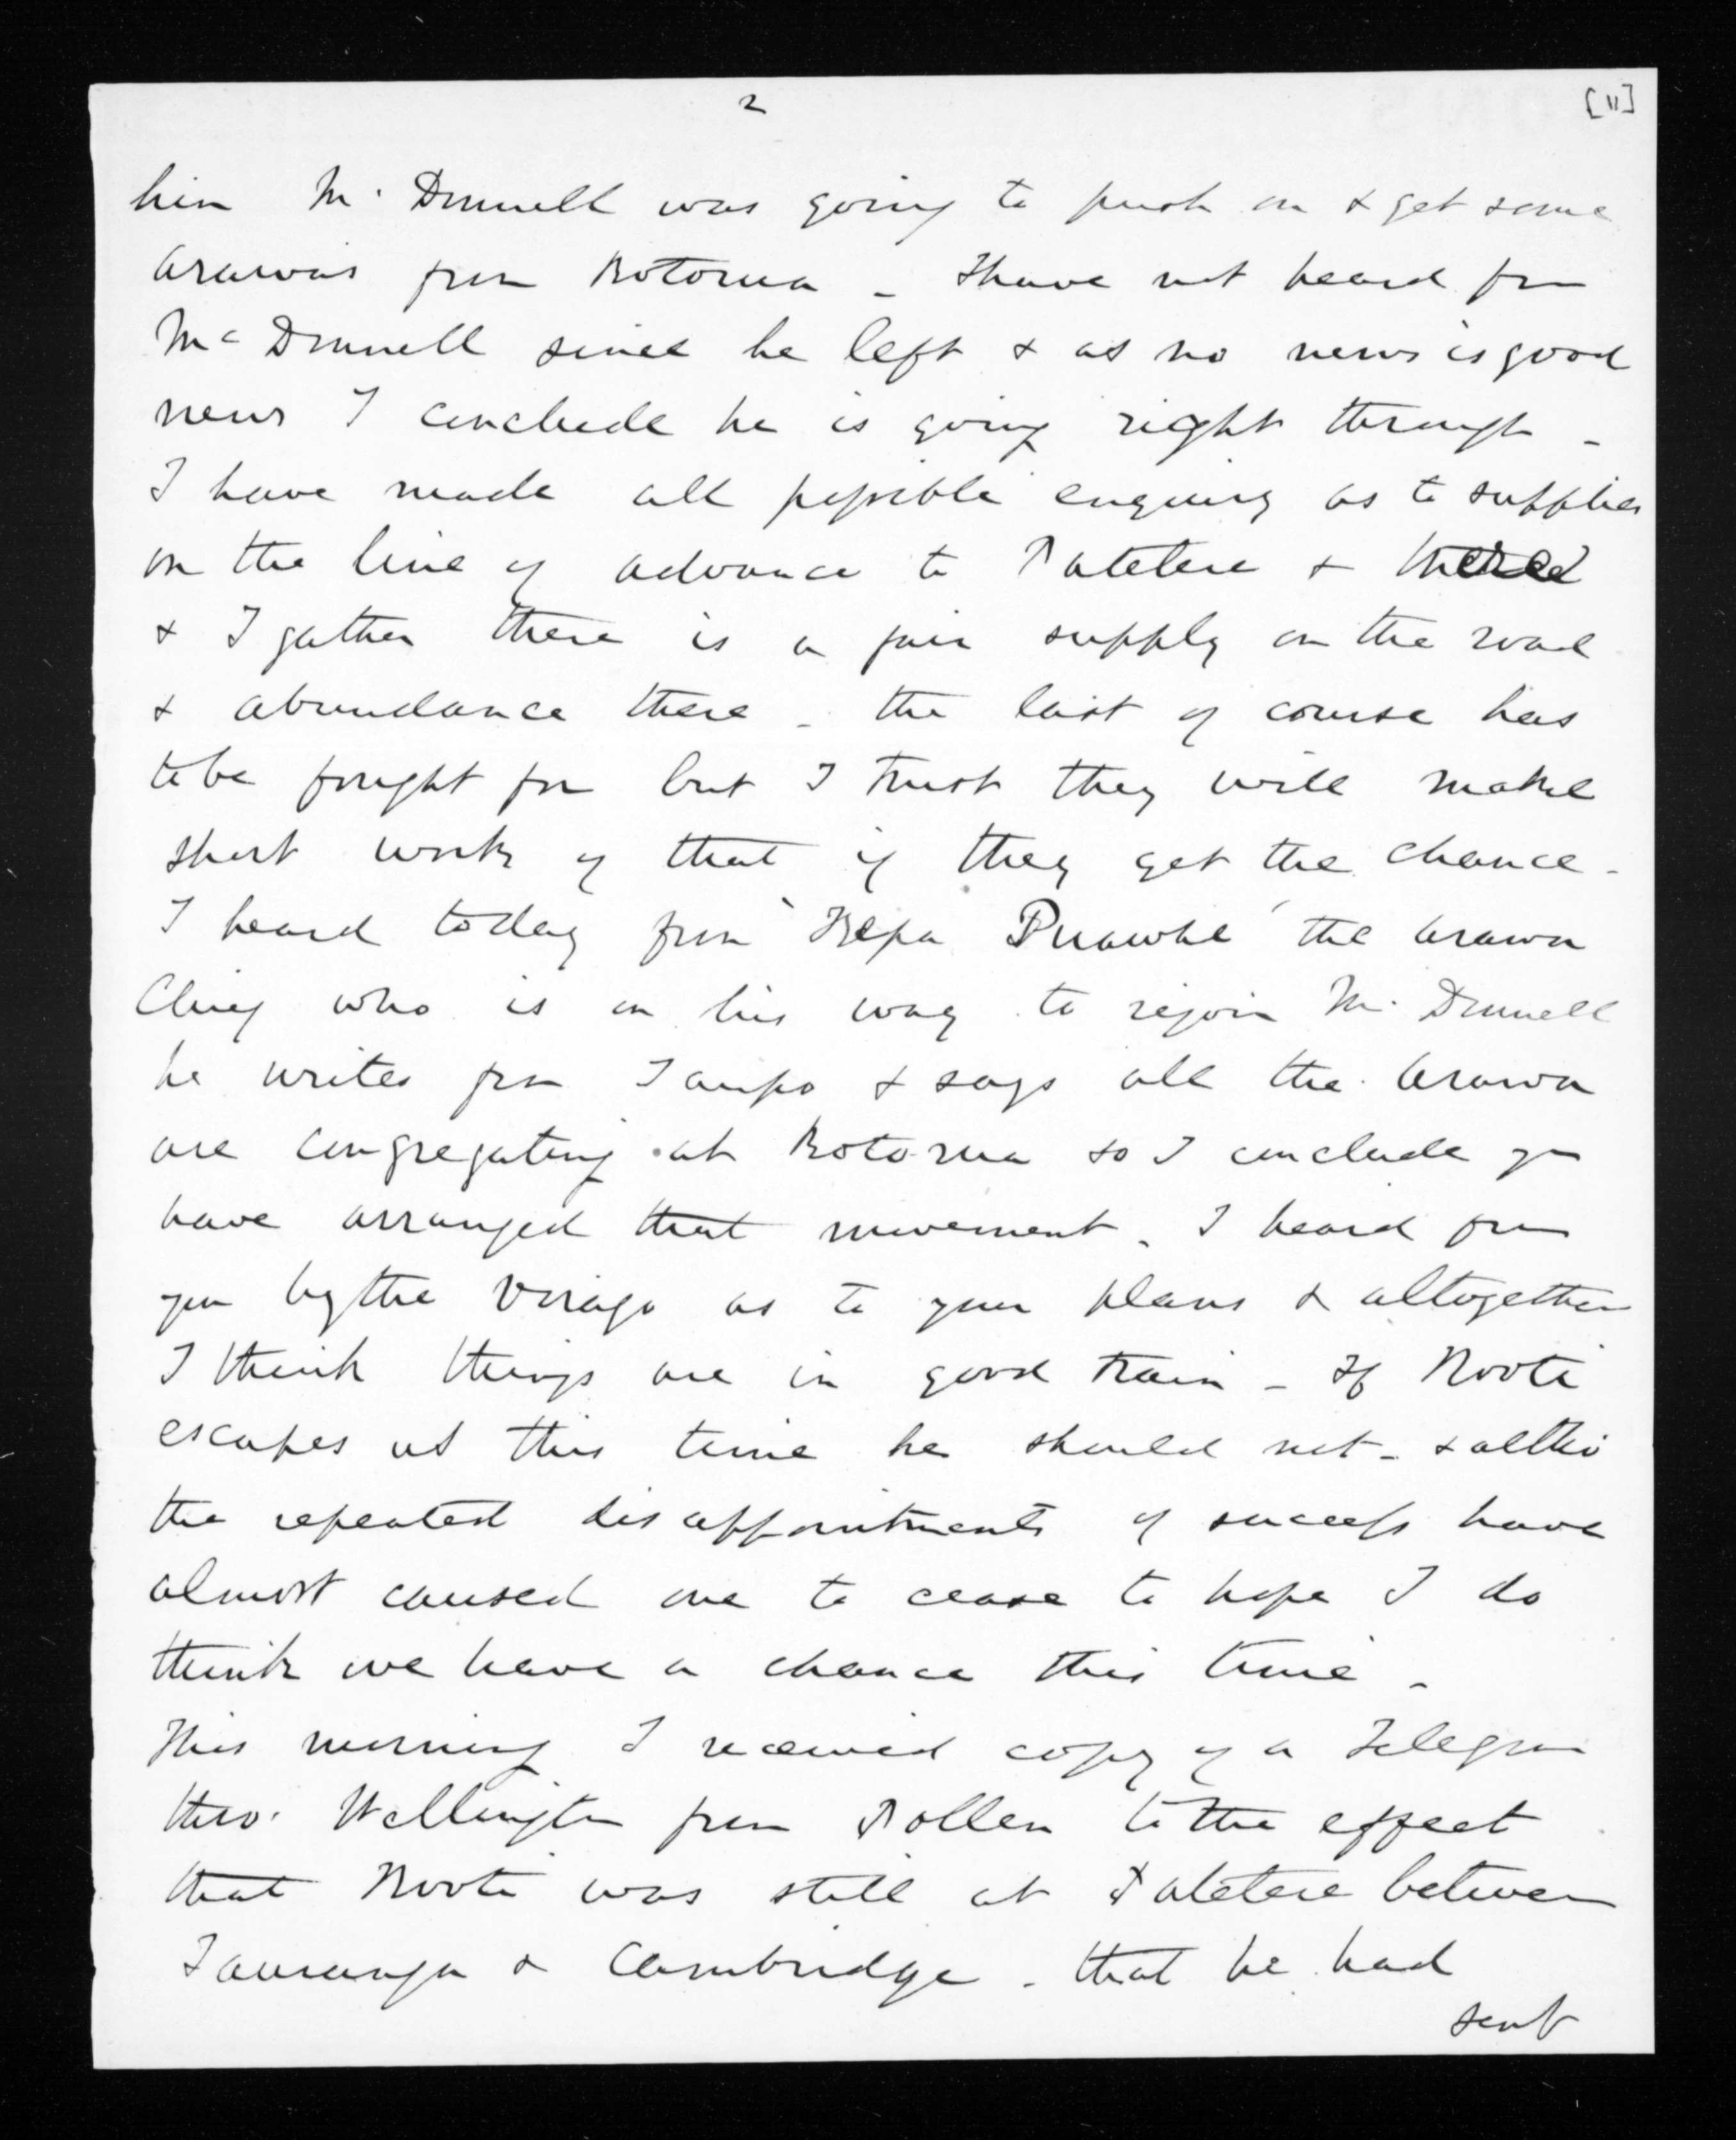 2
[11]
him McDonnell was going to push on & get some
Arawas from Rotorua - I have not heard from
McDonnell since he left & as no news is good
news I conclude he is going right through -
I have made all possible enquiry as to supplies
on the line of advance to Patetere &
& I gather there is a fair supply on the road
& abundance there - the last of course has
to be fought for but I trust they will make
short work of that if they get the chance -
I heard today from "Kepa the Arawa
Chief who is on his way to rejoin McDonnell
he writes from Taupo & says all the Arawa
are congregating at Rotorua so I conclude you
have arranged that movement. I heard from
you by the Virago as to your plans & altogether
I think things are in good train - If Kooti
escapes us this time he should not - & altho'
the repeated disappointments of success have
almost caused one to cease to hope I do
think we have a chance this time -
This morning I received copy of a Telegram
thro' Wellington from Pollen to the effect
that Kooti was still at Patetere between
Tauranga & Cambridge - that he had
sent